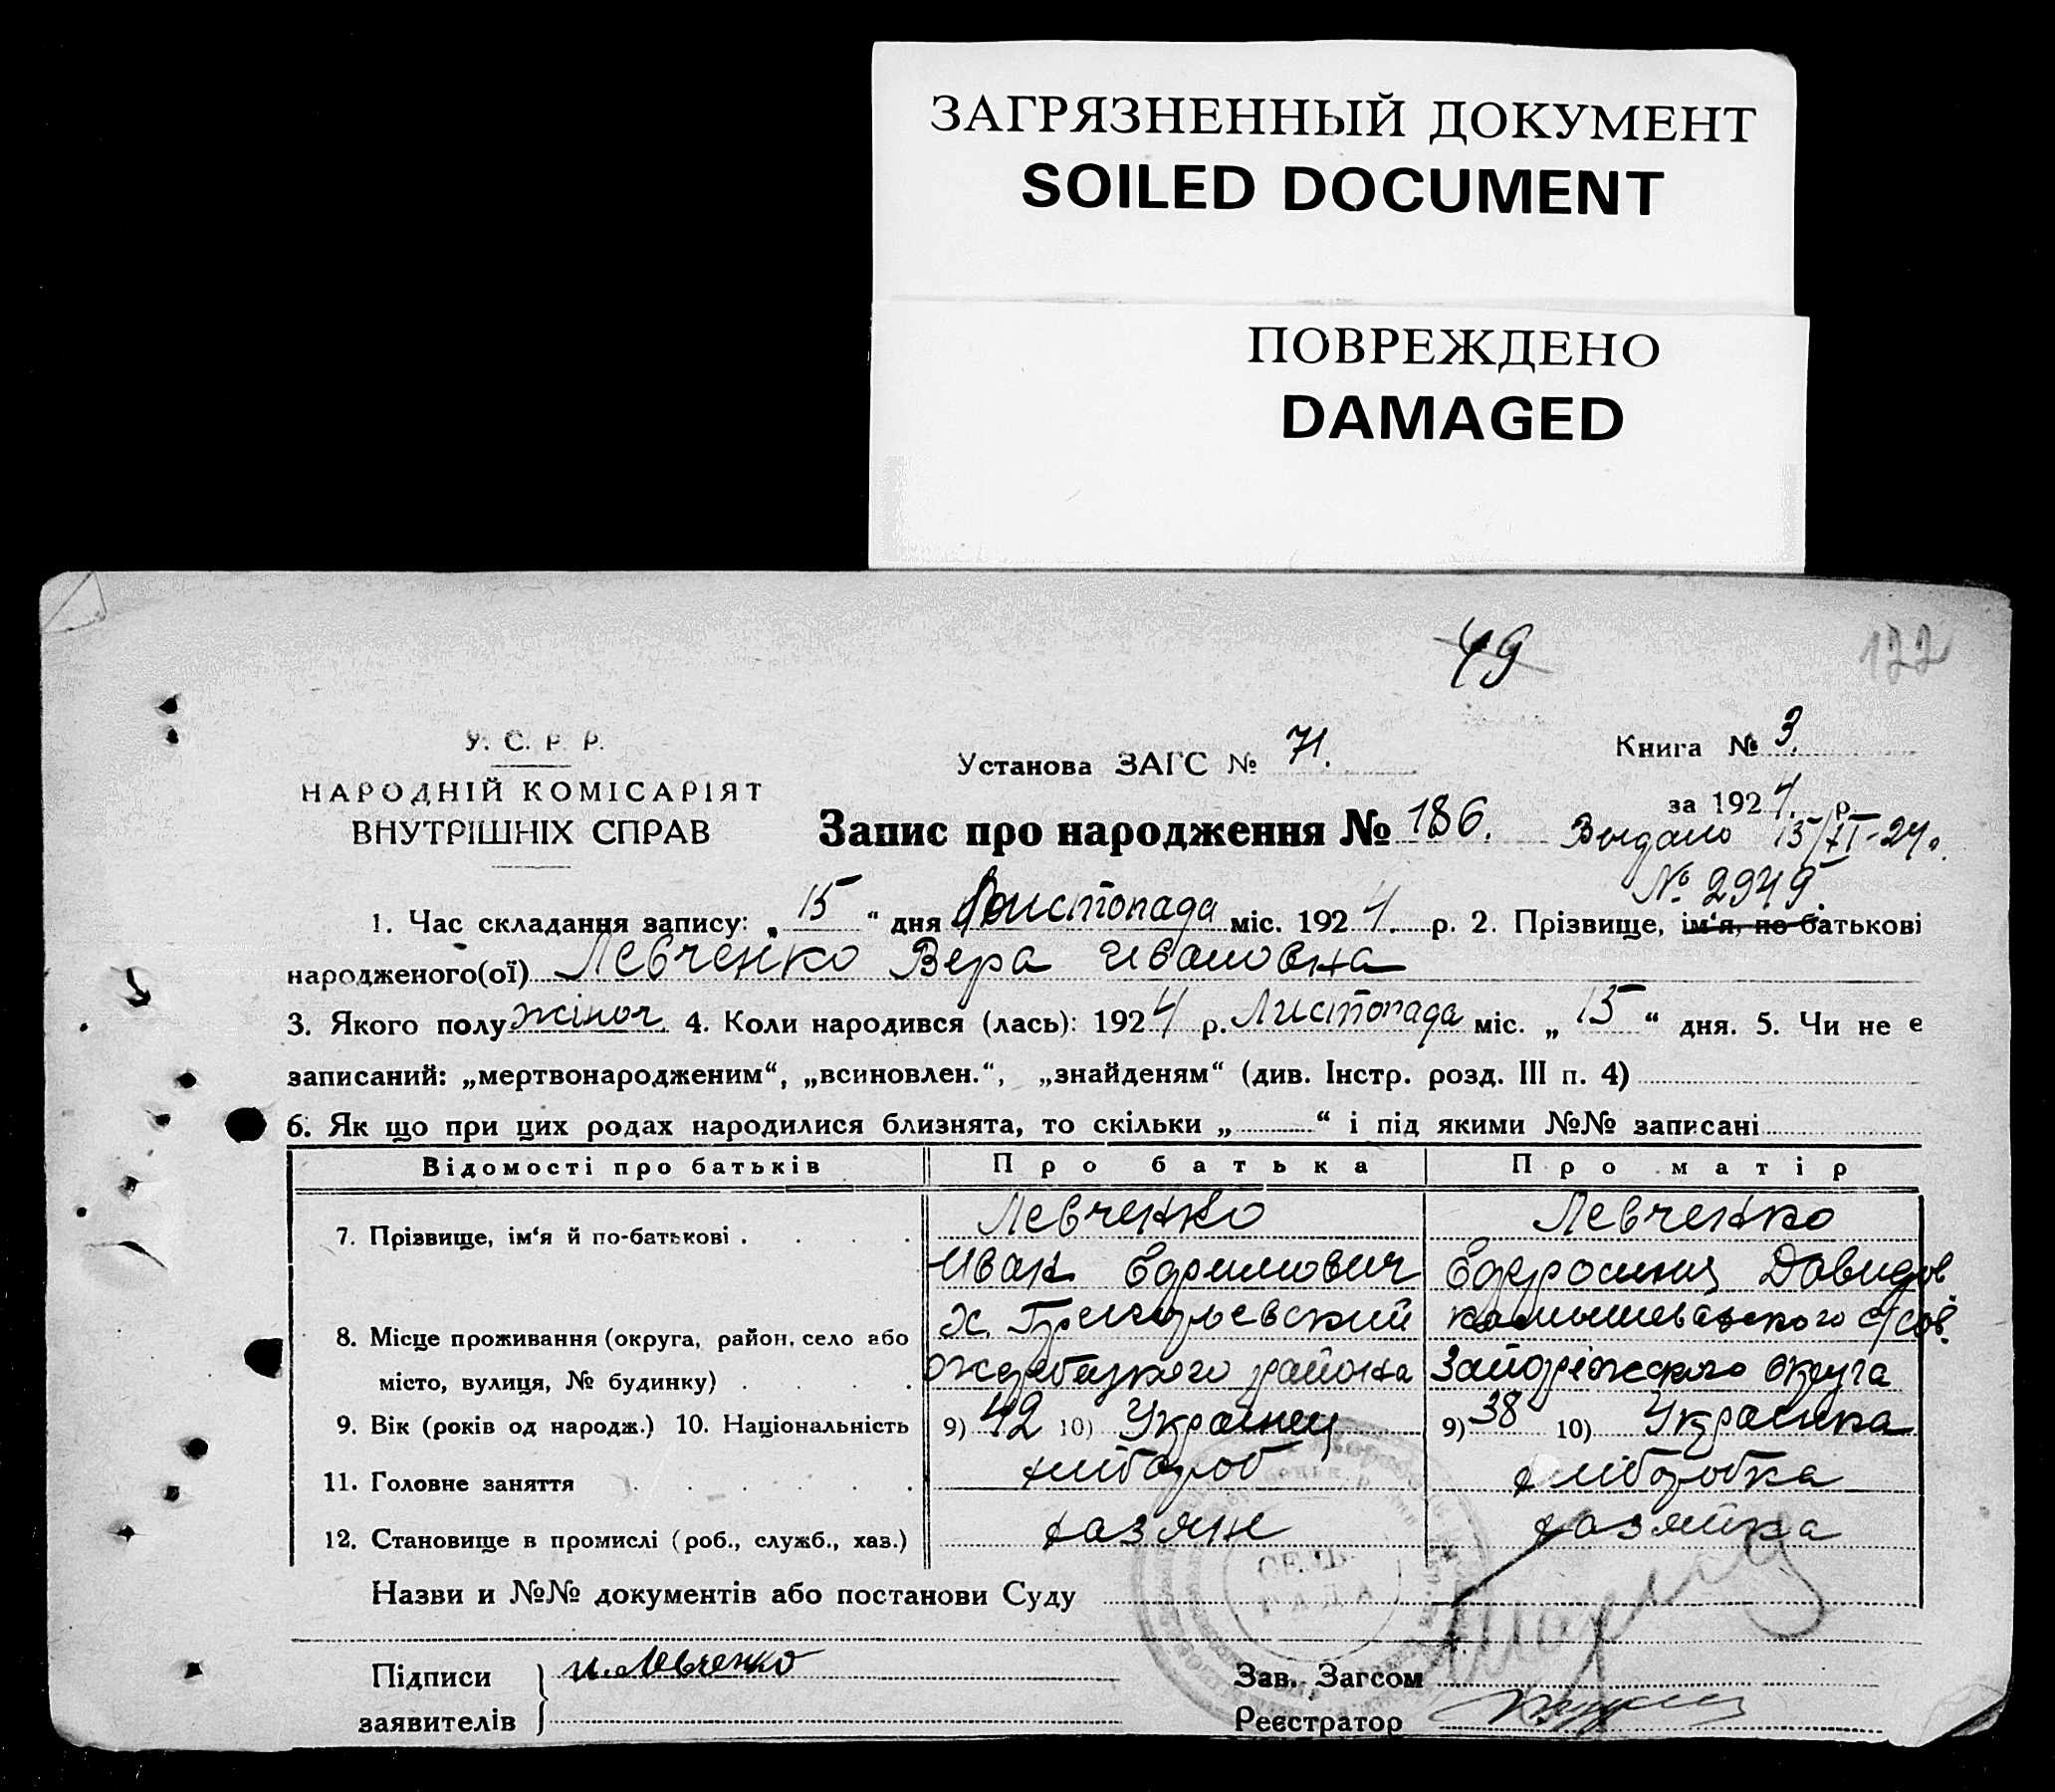 ЗАГРЯЗНЕННЫЙ ДОКУМЕНТ
SOILED DOCUMENT
ПОВРЕЖДЕНО
DAMAGED
49
122
У. С. Р. Р.
НАРОДНІЙ КОМІСАРІЯТ
ВНУТРІШНІХ СПРАВ
Установа ЗАГС № 71.
Книга № 3.
за 1924. р.
Запис про народження № 186.
Выдано 15/XI-24.
№ 2949.
1. Час складання запису: „15“ дня Листопада міс. 1924. р. 2. Прізвище, ім‘я, по батькові
народженого(ої) Левченко Вера Ивановна
3. Якого полу жіноч. 4. Коли народився (лась): 1924 р. Листопада міс. „15“ дня. 5. Чи не є
записаний: „мертвонародженим“, „всиновлен.“, „знайденям“ (див. Інстр. розд. III п. 4)
6. Як що при цих родах народилися близнята, то скільки „ “ і під якими №№ записані
Відомості про батьків Про батька Про матір
7. Прізвище, ім‘я й по-батькові Левченко Левченко
Иван Ефимович Ефросиния Давидов
8. Місце проживання (округа, район, село або х. Григорьевский Камышевахского с/сов.
місто, вулиця, № будинку) района Запоріжского округа
9. Вік (років од народж.) 10. Національність 9) 42 10) Украинец 9) 38 10) Украинка
11. Головне заняття хлібороб хліборобка
12. Становище в промислі (роб., служб., хаз.) хазяин хазяйка
Назви и №№ документів або постанови Суду
СЕЛЬ-
РАДА
Підписи
заявителів
И. Левченко
Зав. Загсом
Реєстратор